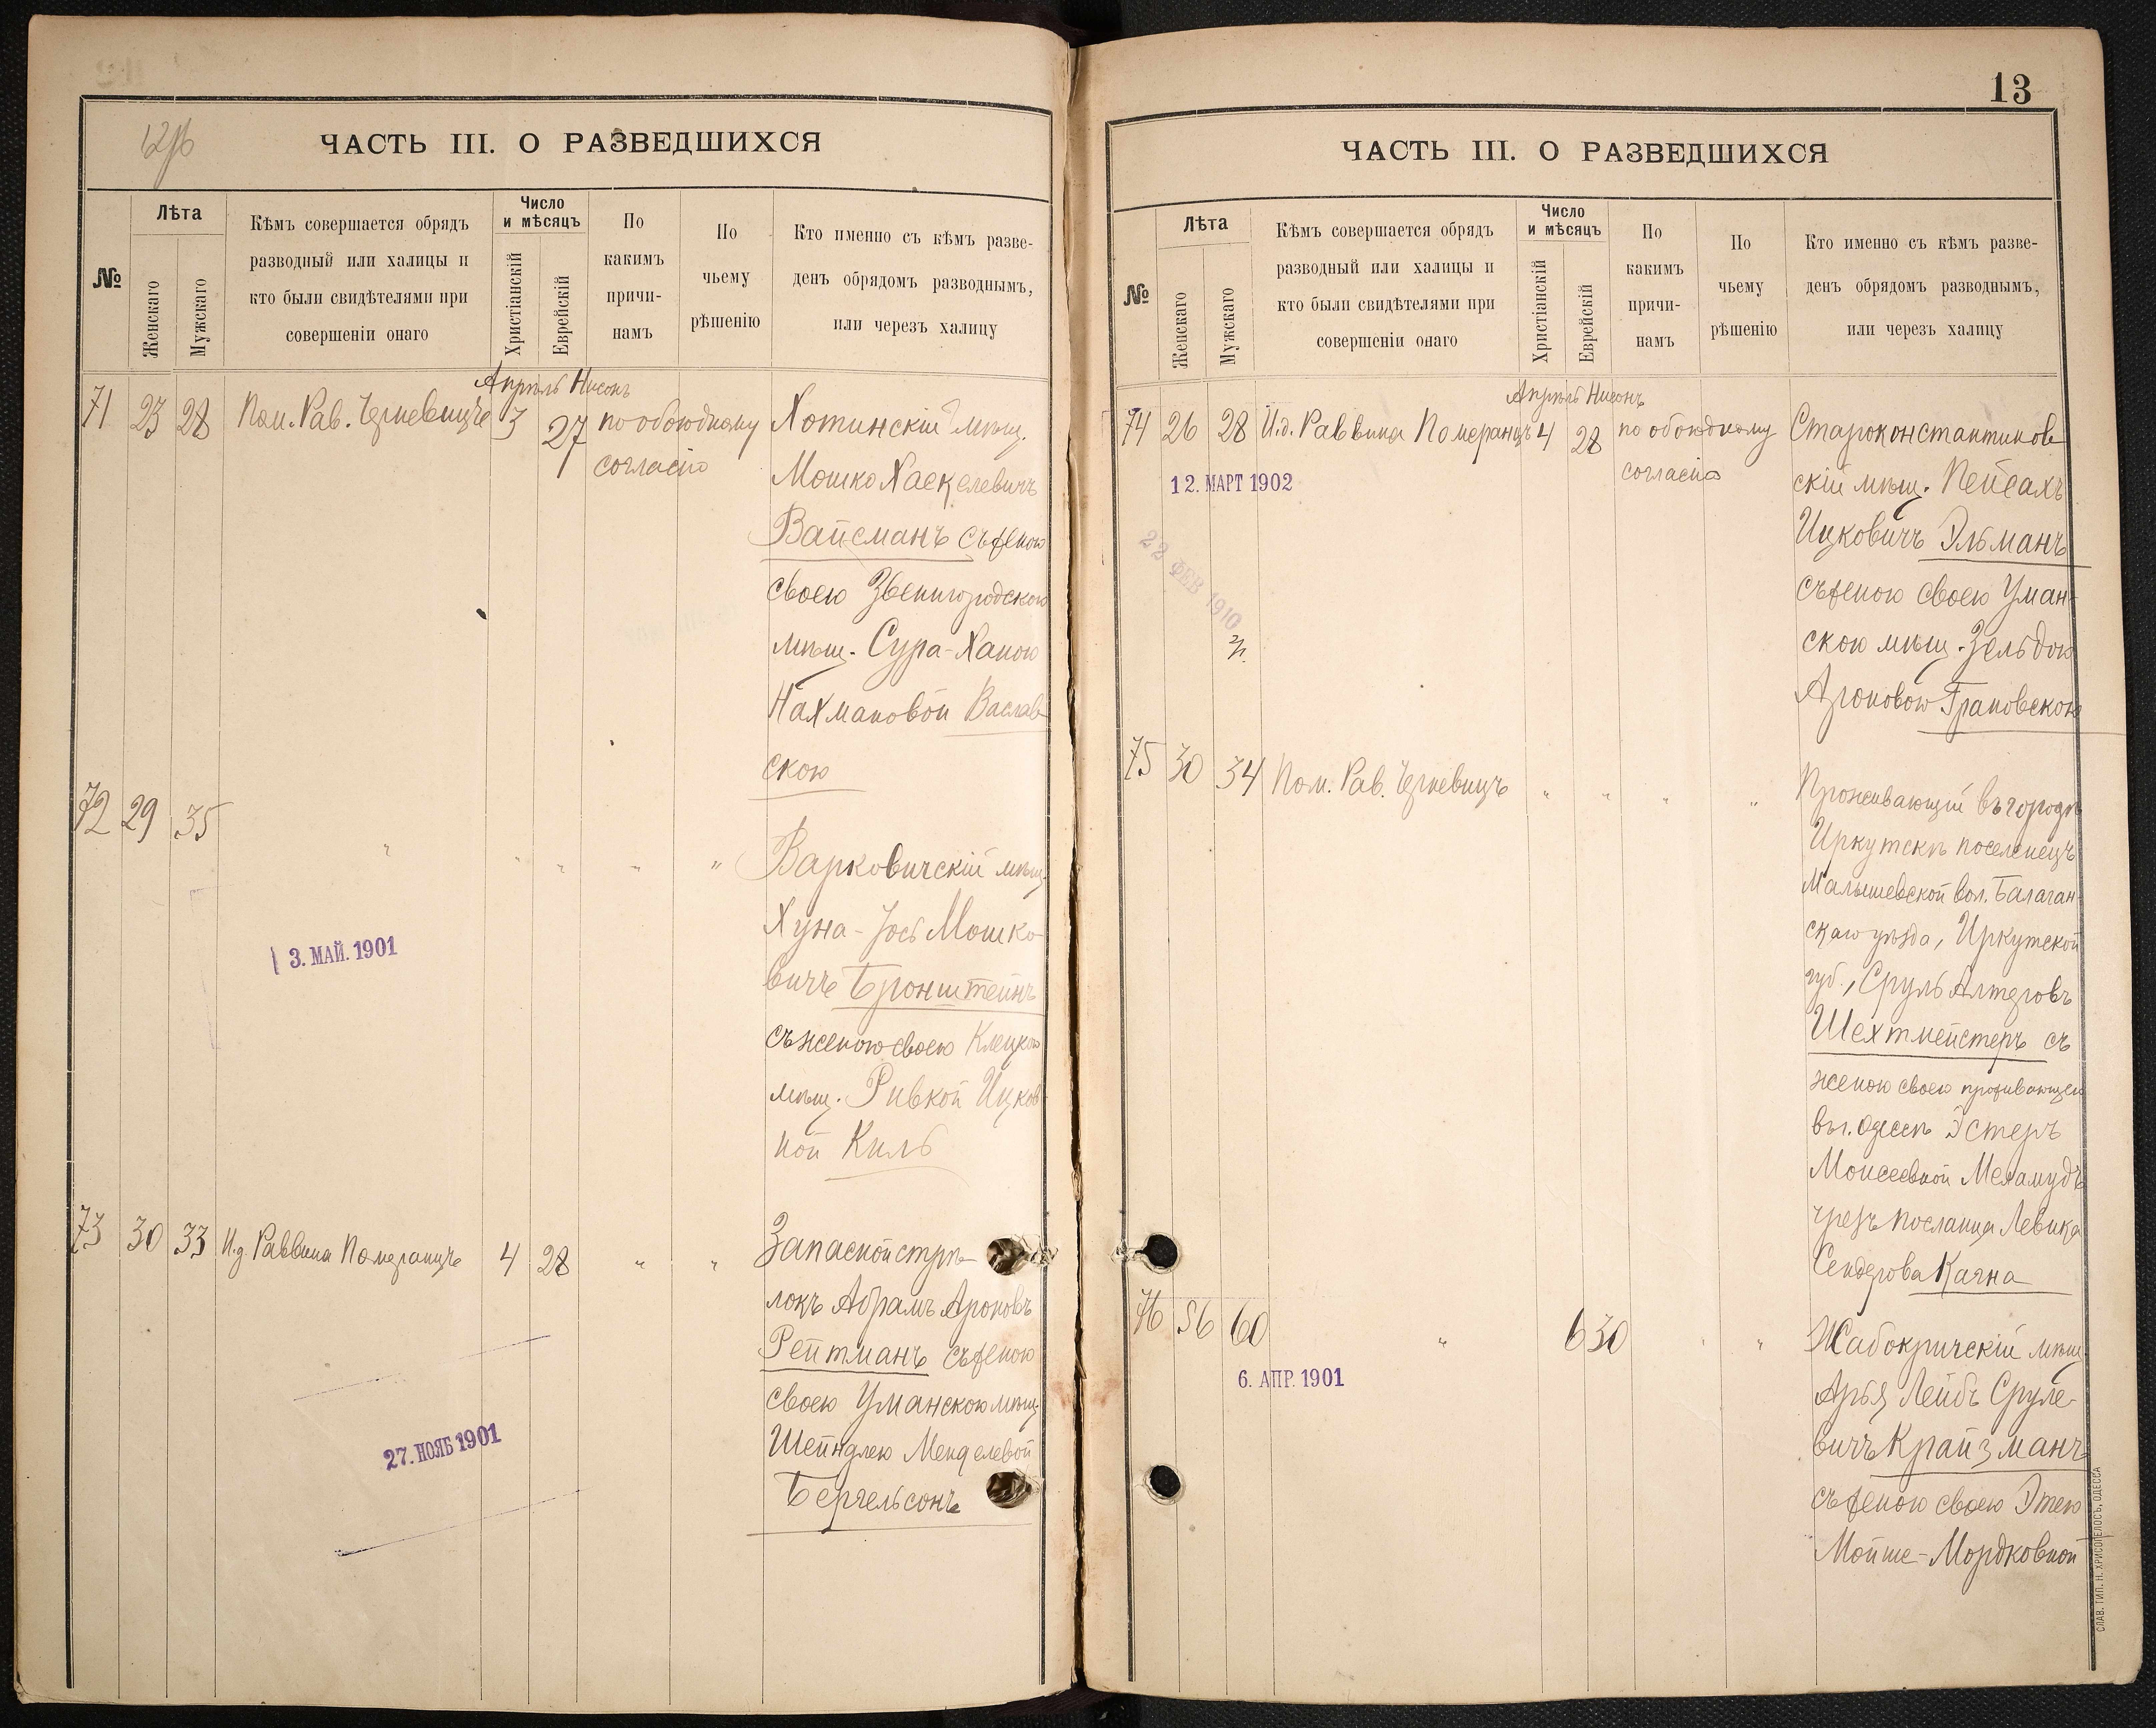 12об
ЧАСТЬ III. О РАЗВЕДШИХСЯ
№
Лѣта
Женскаго
Мужскаго
Кѣмъ совершается обрядъ
разводный или халицы и
кто были свидѣтелями при
совершеніи онаго
Число
и мѣсяцъ
Христіанскій
Еврейскій
По
какимъ
причи-
намъ
По
чьему
рѣшенію
Кто именно съ кѣмъ разве-
денъ обрядомъ разводнымъ,
или черезъ халицу
Апрѣль Нисонъ
71 23 28 Пом. Рав. 3 27 по обоюдному
согласію
Хотинскій мѣщ.
Мошко Хаскелевичъ
Вайсманъ съ женою
своею Звенигородскою
мѣщ. Сура-Ханою
Нахмановой Васлав-
скою
72 29 35 " " " " "
Варковичскій мѣщ.
Хуна-Іось Мошко-
вичъ Бронштейнъ
съ женою своею Клецкою
мѣщ. Ривкой Ицков-
ной Киль
3. МАЙ. 1901
73 30 33 И.д. Раввина Померанцъ 4 28 " "
Запасной стрѣ-
локъ Абрамъ Ароновъ
Рейтманъ съ женою
своею Уманскою мѣщ.
Шейндлею Менделевой
Бергельсонъ
27. НОЯБ 1901
13
ЧАСТЬ III. О РАЗВЕДШИХСЯ
№
Лѣта
Женскаго
Мужскаго
Кѣмъ совершается обрядъ
разводный или халицы и
кто были свидѣтелями при
совершеніи онаго
Число
и мѣсяцъ
Христіанскій
Еврейскій
По
какимъ
причи-
намъ
По
чьему
рѣшенію
Кто именно съ кѣмъ разве-
денъ обрядомъ разводнымъ,
или черезъ халицу
Апрѣль Нисонъ
74 26 28 И.д. Раввина Померанцъ 4 28 по обоюдному
согласію
12. МАРТ 1902
22 ФЕВ 1910
Староконстантинов
скій мѣщ. Пейсахъ
Ицковичъ Эльманъ
съ женою своею Уман-
скою мѣщ. Зельдою
Ароновою Грановскою
75 30 34 Пом. Рав. " " " "
Проживающій въ городѣ
Иркутскѣ поселенецъ
Малышевской вол. Балаган-
скаго уѣзда, Иркутской
губ., Сруль Алтеровъ
Шехтмейстеръ съ
женою своею проживающею
въ г. Одессѣ Эстеръ
Моисеевной Меламудъ
чрезъ посланца Левика
Сендерова Каяна
76 56 60 " 6 30 " "
6. АПР. 1901
Жабокричскій мѣщ.
Арья Лейбъ Сруле-
вичъ Крайзманъ
съ женою своею Этею
Мойше-Мордковной
СЛАВ. ТИП. Н. ХРИСОГЕЛОСЪ, ОДЕССА